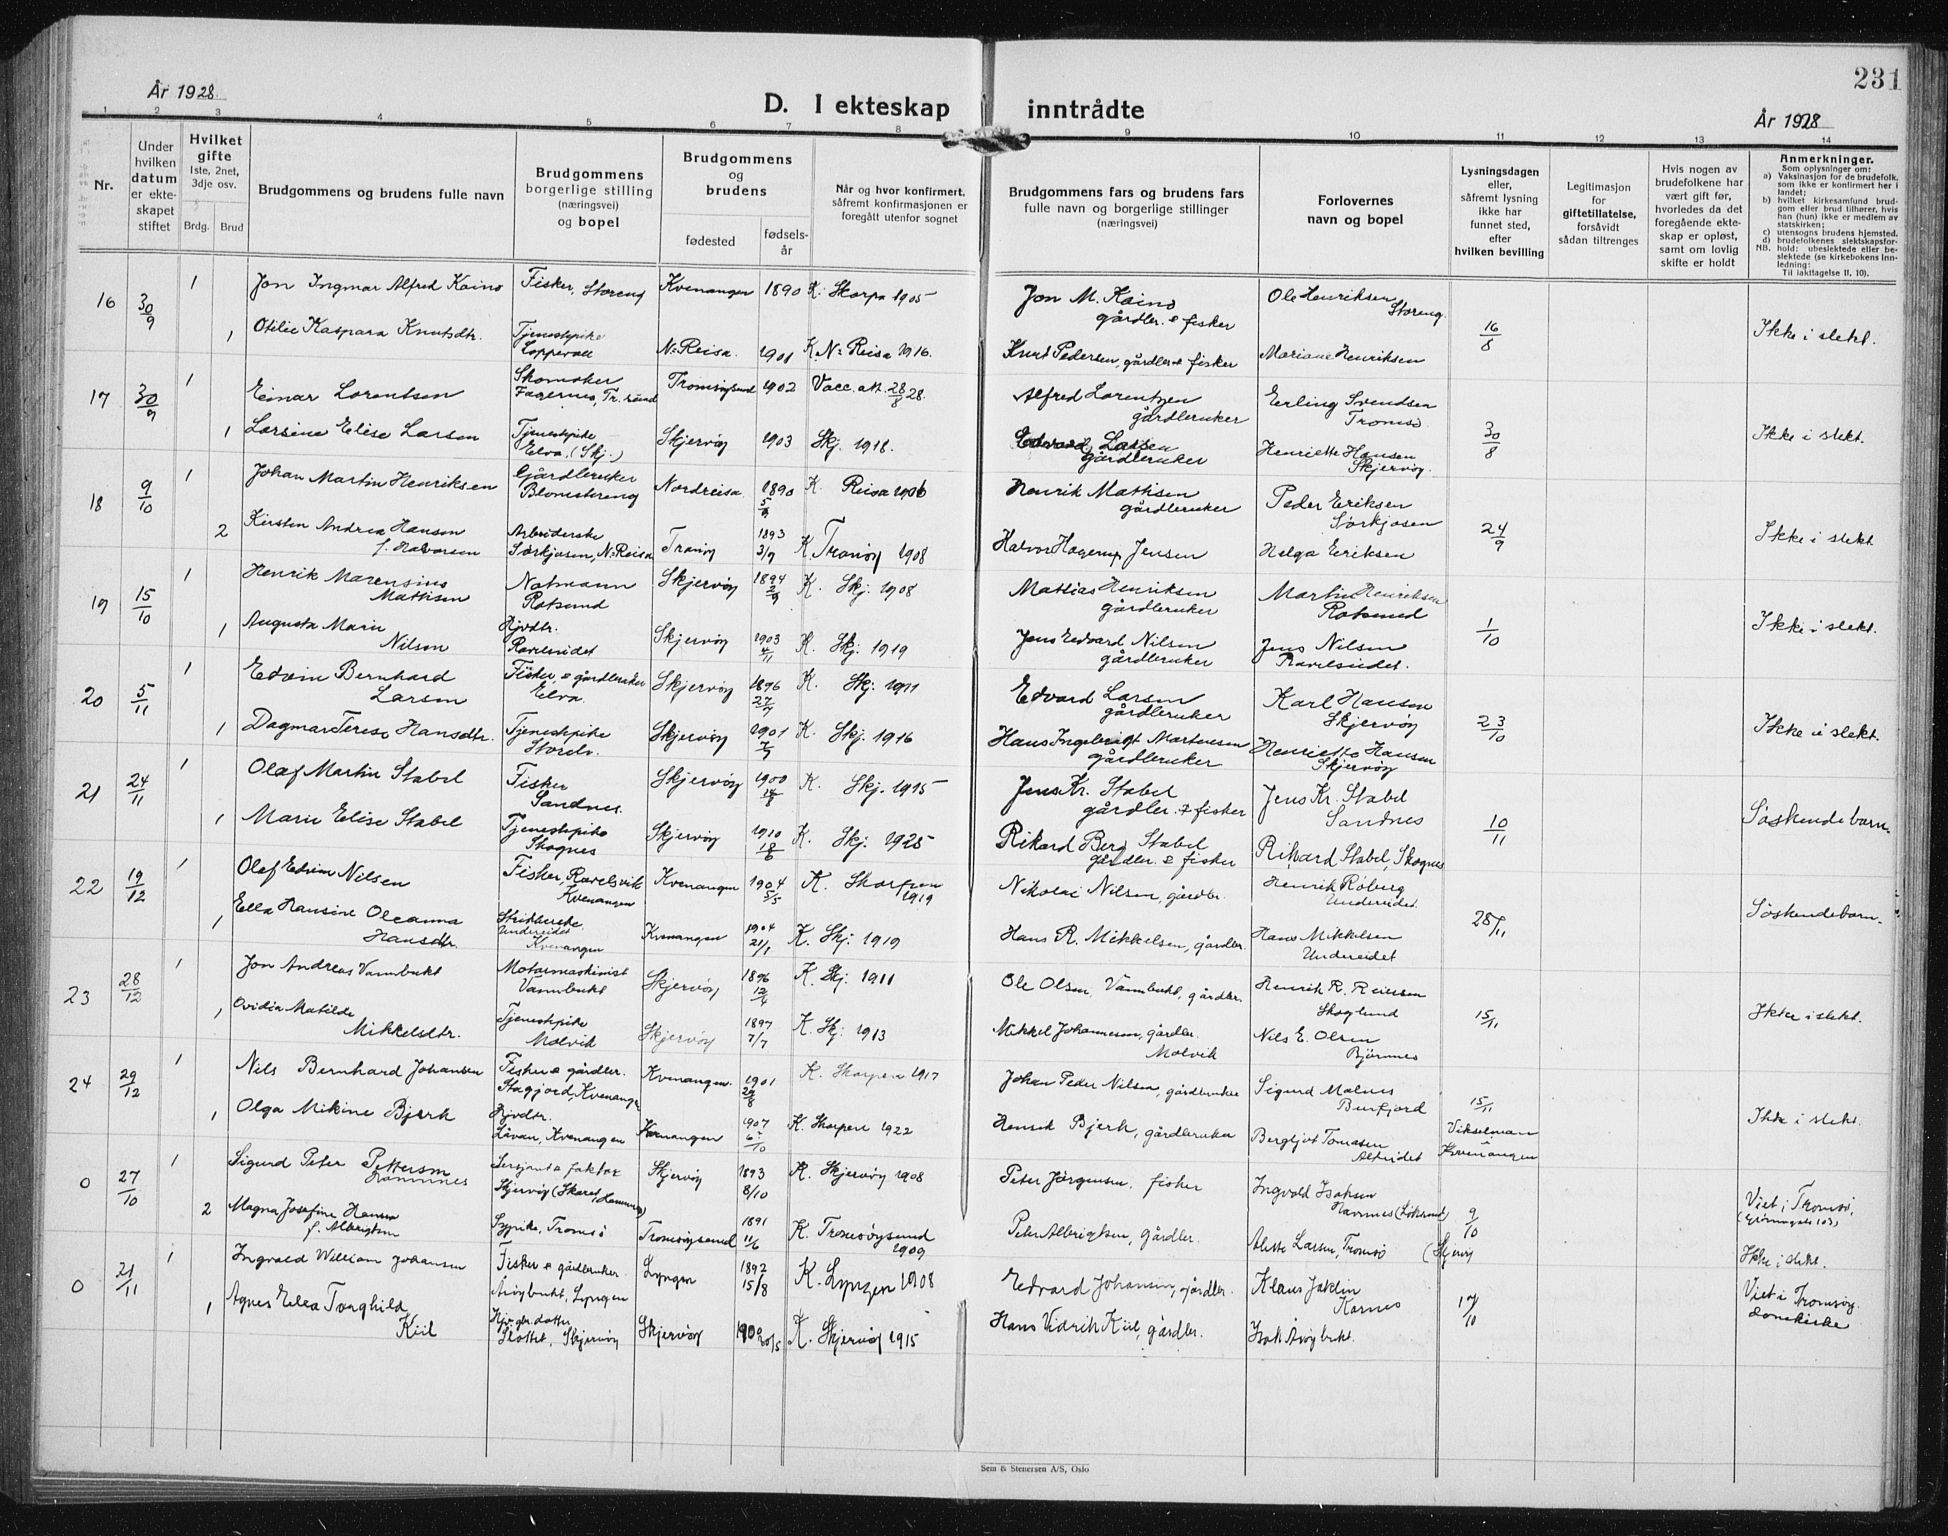 231
År 1928
D. I ekteskap inntrådte
År 1928
1 2 3 4 5 6 7 8 9 10 11 12 13 14
Nr.
Under hvilken datum er ekteskapet stiftet
Hvilket gifte
1ste, 2net, 3dje osv.
Brdg. Brud
Brudgommens og brudens fulle navn
Brudgommens borgerlige stilling (næringsvei) og bopel
Brudgommens og brudens
fødested
fødselsår
Når og hvor konfirmert, såfremt konfirmasjonen er foregått utenfor sognet
Brudgommens fars og brudens fars fulle navn og borgerlige stillinger (næringsvei)
Forlovernes navn og bopel
Lysningsdagen eller, såfremt lysning ikke har funnet sted, efter hvilken bevilling
Legitimasjon for giftetillatelse, forsåvidt sådan tiltrenges
Hvis nogen av brudefolkene har vært gift før, hvorledes da det foregående ekteskap er opløst, samt om lovlig skifte er holdt
Anmerkninger.
Som oplysninger om:
a) Vaksinasjon for de brudefolk, som ikke er konfirmert her i landet;
b) hvilket kirkesamfund brudgom eller brud tilhører, hvis han (hun) ikke er medlem av statskirken;
c) utensogns brudens hjemsted.
d) brudefolkenes slektskapsforhold: ubeslektede eller beslektede (se kirkebokens Innledning:
NB. Til iakttagelse II, 10).
16 30/9 1 Jon Ingmar Alfred Kaino Fisker, Storeng Kvenangen 1890 K. Skorpa 1905 Jon M. Kaino gårdbr. & fisker Ole Henriksen Storeng 16/8 Ikke i slekt.
1 Otilie Kaspara Knutsdtr. Tjenestepike Loppevoll N-Reisa. 1901 K. N-Reisa 1916. Knut Pedersen, gårdbr & fisker Mariane Henriksen
17 30/9 1 Einar Lorentsen Skomaker Fagernes, Tr.sund Tromsøysund 1902 Vacc. att. 28/8 28. Alfred Lorentzen gårdbruker Erling Svendsen Tromsø 30/8 Ikke i slekt.
1 Larsine Elise Larsen Tjenestepike Elva. (Skj.) Skjervøy 1903 Skj. 1918. Edvard Larsen gårdbruker Henriette Hansen Skjervøy.
18 9/10 1 Johan Martin Henriksen Gårdbruker Blomstereng Nordreisa 1890 5/9 K. Reisa 1906 Henrik Mathisen gårdbruker Peder Eriksen Sørkjosen 24/9 Ikke i slekt
2 Kirsten Andrea Hansen f. Halvorsen Arbeiderske Sørkjosen, N-Reisa Tranøy 1893 3/9 K. Tranøy 1908 Halvor Hagerup Jensen Helga Eriksen
19 15/10 1 Henrik Marensius Mathisen Notmann Rotsund Skjervøy 1894 2/9 K. Skj. 1908 Mathias Henriksen gårdbruker Martin Henriksen Rotsund 1/10 Ikke i slekt.
1 Augusta Marie Nilsen Hjvdtr. Ravelseidet Skjervøy 1903 4/11 K. Skj. 1919 Jens Edvard Nilsen gårdbruker Jens Nilsen Ravelseidet.
20 5/11 1 Edvin Bernhard Larsen Fisker, & gårdbruker Elva. Skjervøy 1896 27/9 K. Skj. 1911 Edvard Larsen gårdbruker Karl Hansen Skjervøy 23/10 Ikke i slekt.
1 Dagmar Terese Hansdtr. Tjenestepike Storels. Skjervøy 1901 7/7 K. Skj. 1916 Hans Ingebrigt Martinesen gårdbruker Henriette Hansen Skjervøy
21 24/11 1 Olaf Martin Stabel Fisker Sandnes. Skjervøy 1900 14/8 K. Skj. 1915 Jens Kr. Stabel gårdbr. & fisker Jens Kr. Stabel Sandnes 10/11 Søskendebarn.
1 Marie Elise Stabel Tjenestepike Skognes Skjervøy 1910 18/6 K. Skj. 1925 Rikard Berg Stabel gårdbr. & fisker Rikard Stabel, Skognes
22 19/12 1 Olaf Edvin Nilsen Fisker, Ravelsvik Kvenangen Kvenangen 1904 5/5 K. Skorpen 1919 Nikolai Nilsen, gårdbr. Henrik Røberg Undereidet. 28/11 Søskendebarn.
1 Ella Hansine Oleanna Hansdtr. Strikkerske Undereidet Kvenangen Kvenangen 1904 21/1 K. Skj. 1919 Hans R. Mikkelsen, gårdbr. Hans Mikkelsen Undereidet
23 28/12 1 Jon Andreas Vannbukt Motormaskinist Vannbukt Skjervøy 1896 12/4 K. Skj. 1911 Ole Olsen Vannbukt, gårdbr. Henrik R. Reiersen Skoglund 15/11 Ikke i slekt.
1 Ovidia Matilde Mikkelsdtr. Tjenestepike Molvik Skjervøy 1897 7/7 K. Skj. 1913 Mikkel Johannesen, gårdbr. Molvik Nils E. Olsen Bjørnnes
24 29/12 1 Nils Bernhard Johansen Fisker & gårdbr. Storfjord, Kvenangen Kvenangen. 1901 29/8 K. Skorpen 1917 Johan Peder Nilsen, gårdbruker Sigurd Malnes Burfjord 15/11 Ikke i slekt.
1 Olga Mikine Bjerk Hjvdtr. Låvan, Kvenangen Kvenangen 1907 6/10 K. Skorpen 1922 Henrik Bjerk, gårdbruker Bergljot Tomasen Alteidet Vikselman i Kvenangen
0 27/10 1 Sigurd Peter Pettersen Sersjant & faktor Skjervøy Skjervøy 1893 8/10 K. Skjervøy 1908 Peter Jörgensen, fisker Ingvald Isaksen Havnnes 9/10 Viet i Tromsø,
2 Magna Josefine Hansen f. Albrigtsen Sypike, Tromsø Tromsøysund 1891 11/6 K. Tromsøysund 1909 Peter Albrigtsen, gårdbr. Alette Larsen, Tromsø Ikke i slekt.
0 21/11 1 Ingvald William Johansen Fisker & gårdbruker Årøybukt, Lyngen Lyngen 1892 15/8 K. Lyngen 1908 Edvard Johansen, gårdbr. Klaus Jaklin Karnes 17/10 Viet i Tromsøy. domkirke
1 Agnes Ella Torghild Kiil Hjv. gbr. datter Slottet, Skjervøy Skjervøy 1900 20/5 K. Skjervøy 1915 Hans Vidrik Kiil, gårdbr. Isak Årøybukt.
Sem & Stenersen A/S, Oslo